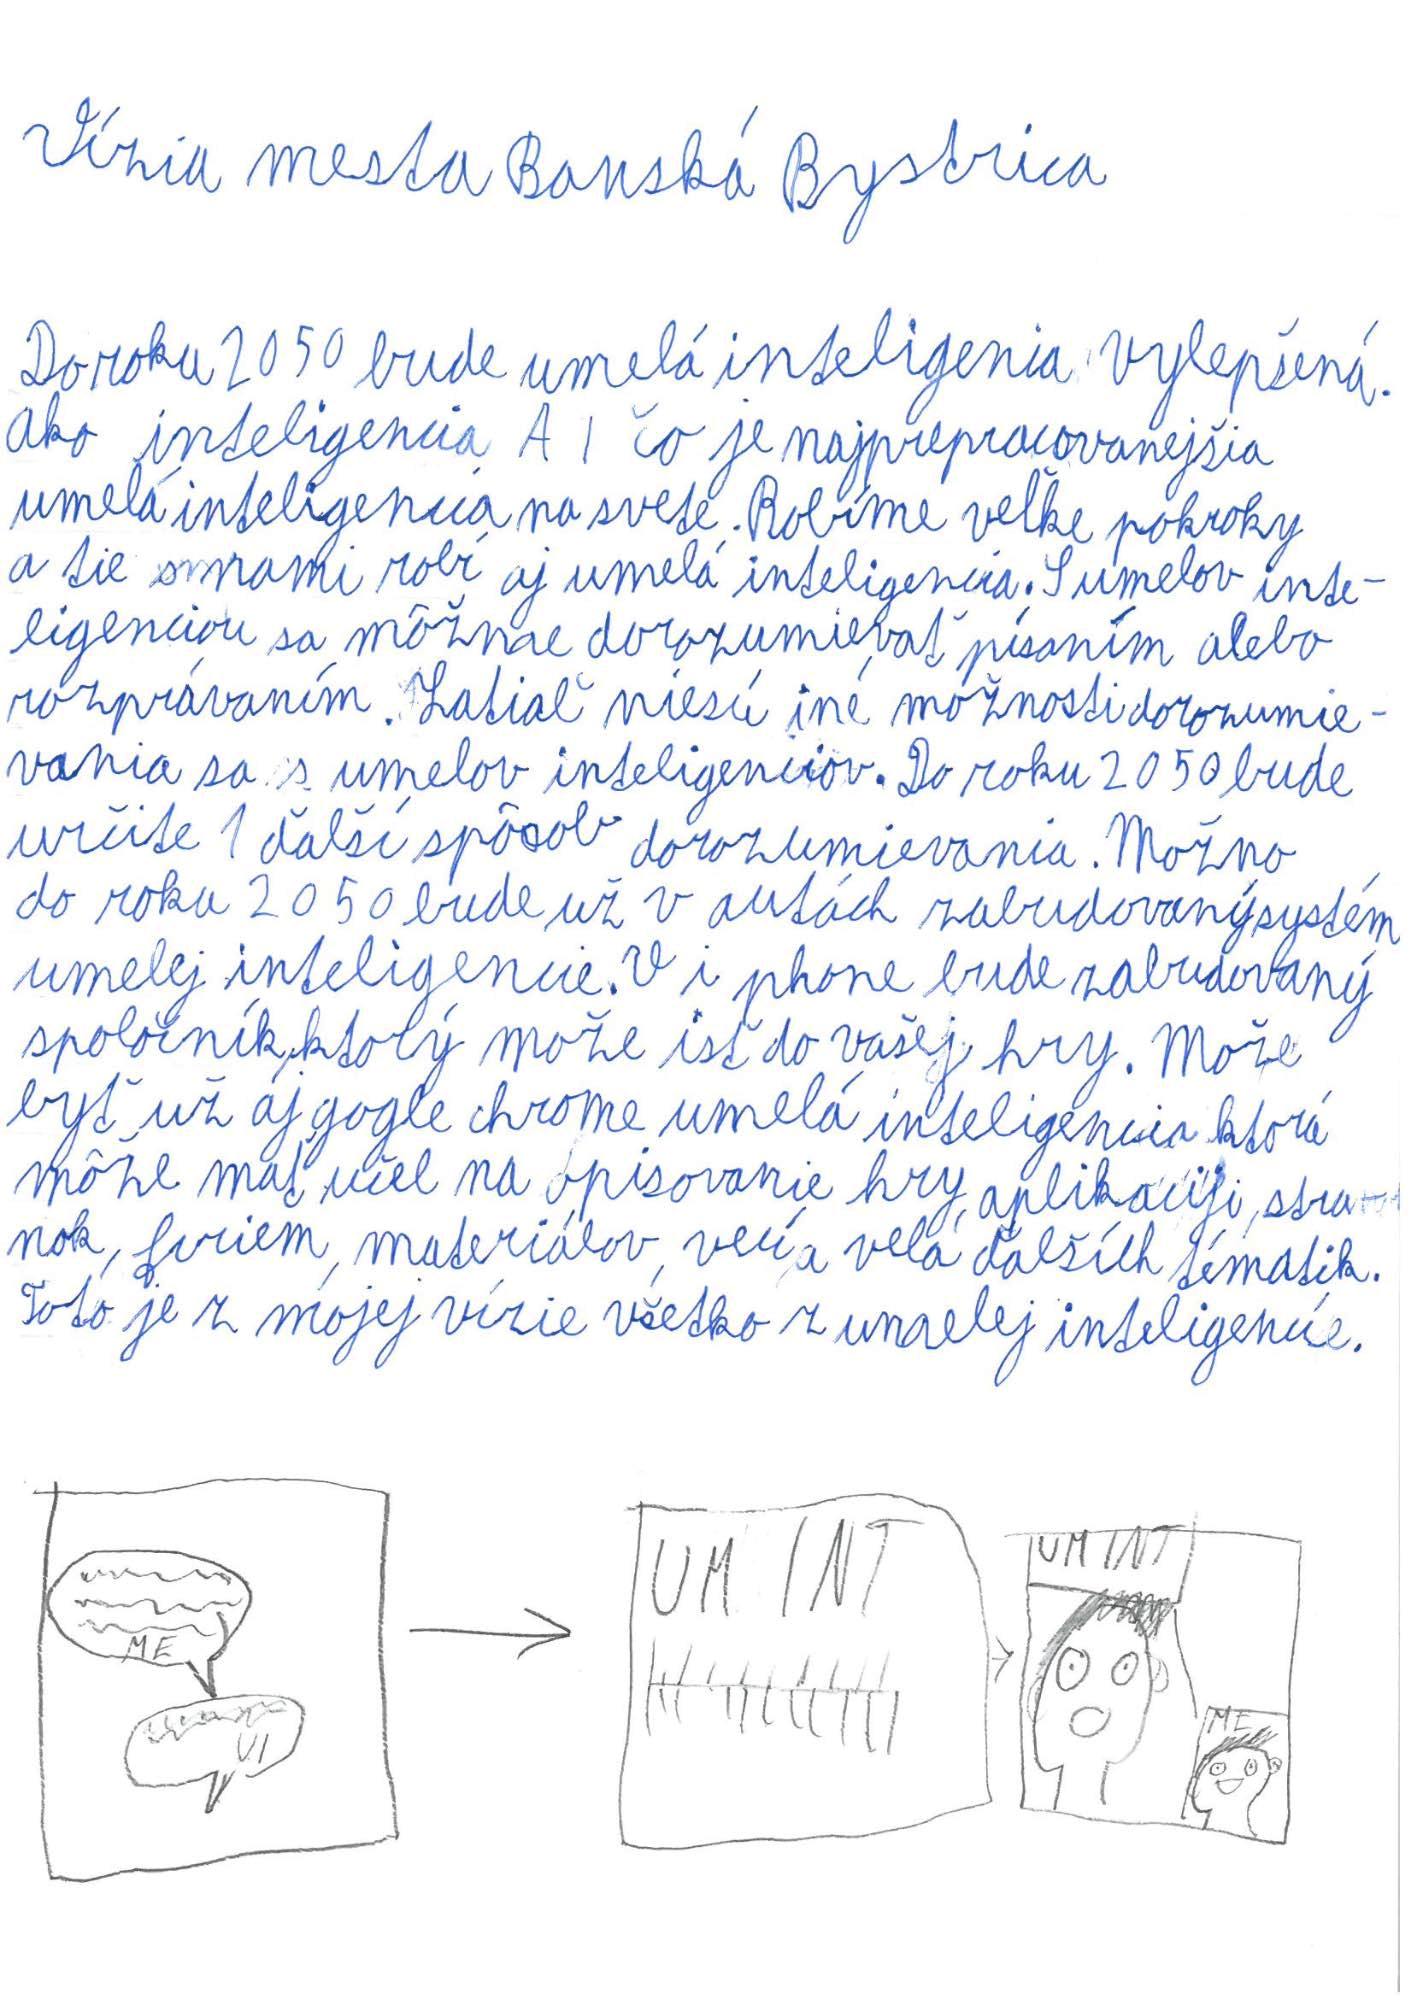 Vízia mesta Banská Bystrica
Do roku 2050 bude umelá inteligenia vylepšená.
Ako inteligencia A I čo je najprepracovanejšia
umelá inteligencia na svete. Robíme veľke pokroky
a tie snami robí aj umelá inteligencia. S umelov inte-
ligenciou sa môžnae dorozumievať písaním alebo
rozprávaním. Zatiaľ niesú iné móžnosti dorozumie-
vania sa s umelov inteligenciov. Do roku 2050 bude
určite 1 ďalší spôsob dorozumievania. Možno
do roku 2050 bude už v autách zabudovaný systém
umelej inteligencie. V i phone bude zabudovaný
spoločník, ktorý može isť do vašej hry. Može
byť už aj gogle chrome umelá inteligencia ktorá
môže mať učel na opisovanie hry, aplikaciji, stra
nok, firiem, materiálov, vecí a vela ďalších tématik.
Toto je z mójej vízie všetko z umelej inteligencie.
ME
UI
UM INT
UM INT
ME